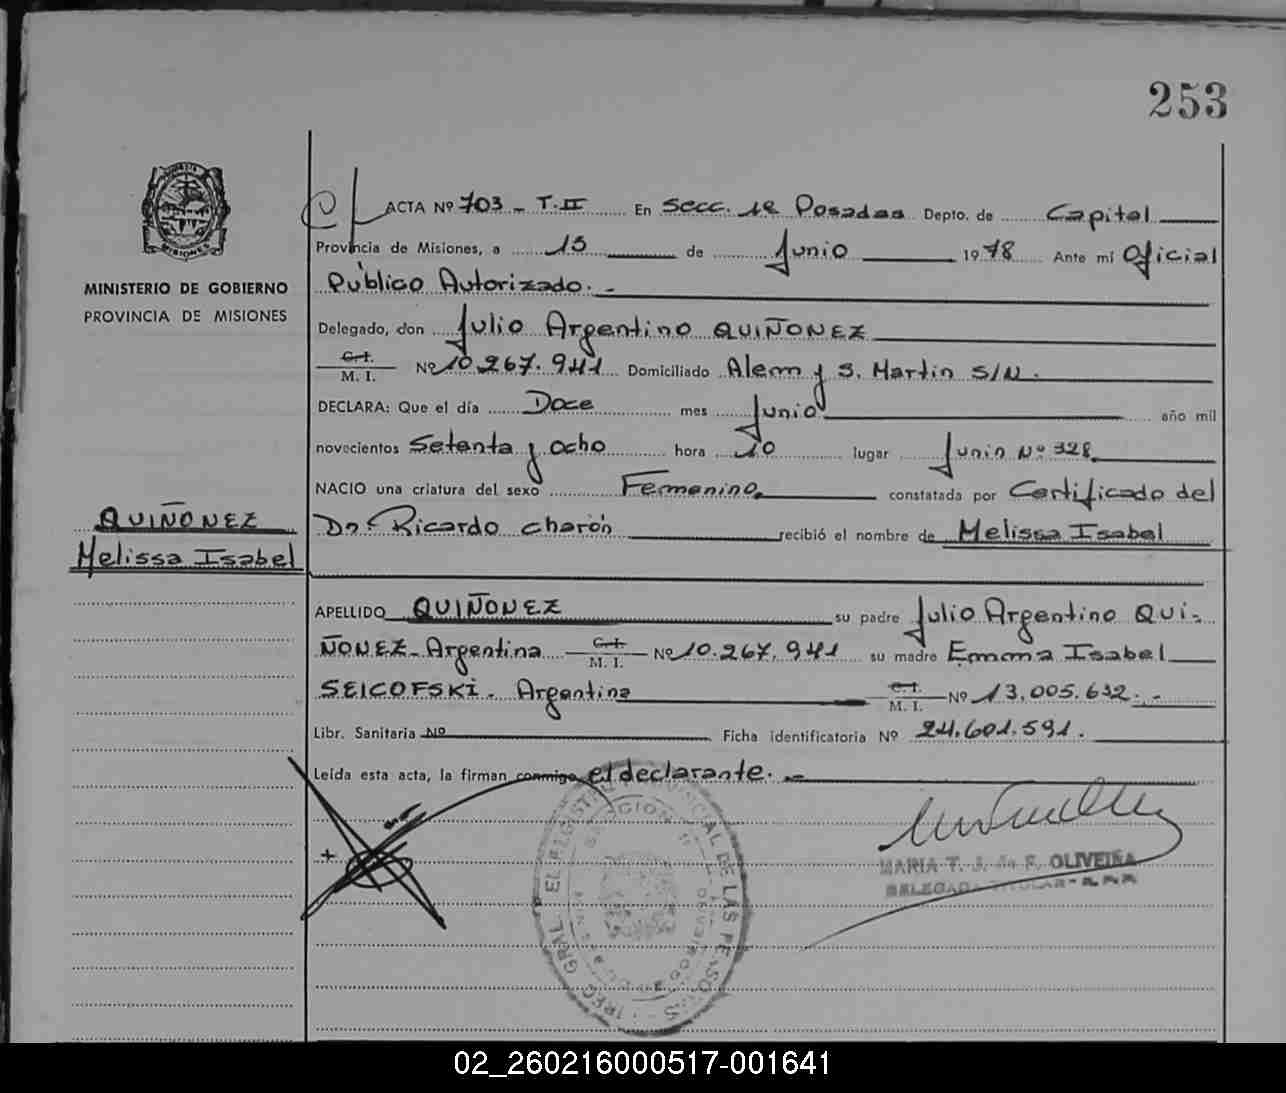 253
MISIONES
MINISTERIO DE GOBIERNO
PROVINCIA DE MISIONES
ACTA Nº 703 - T. II En Secc. 1ª Posadas Depto. de Capital
Provincia de Misiones, a 15 de Junio 1978 Ante mí Oficial
Público Autorizado. -
Delegado, don Julio Argentino QUIÑONEZ
C. I.
M. I. Nº 10.267.941 Domiciliado Alem y S. Martin S/N.
DECLARA: Que el día Doce mes Junio año mil
novecientos Setenta y ocho hora 10 lugar Junin Nº 328.
NACIO una criatura del sexo Femenino. constatada por Certificado del
QUIÑONEZ
Melissa Isabel
Dr. Ricardo Charón recibió el nombre de Melissa Isabel
APELLIDO QUIÑONEZ su padre Julio Argentino QUI-
ÑONEZ - Argentina C. I. M. I. Nº 10.267.941 su madre Emma Isabel
SEICOFSKI - Argentina C. I. M. I. Nº 13.005.632. -
Libr. Sanitaria Nº Ficha identificatoria Nº 24.601.591.
Leída esta acta, la firman conmigo el declarante. -
MARIA T. J. de F. OLIVEIRA
DELEGADA TITULAR
GRAL. EL REGISTRO PROVINCIAL DE LAS PERSONAS
02_260216000517-001641